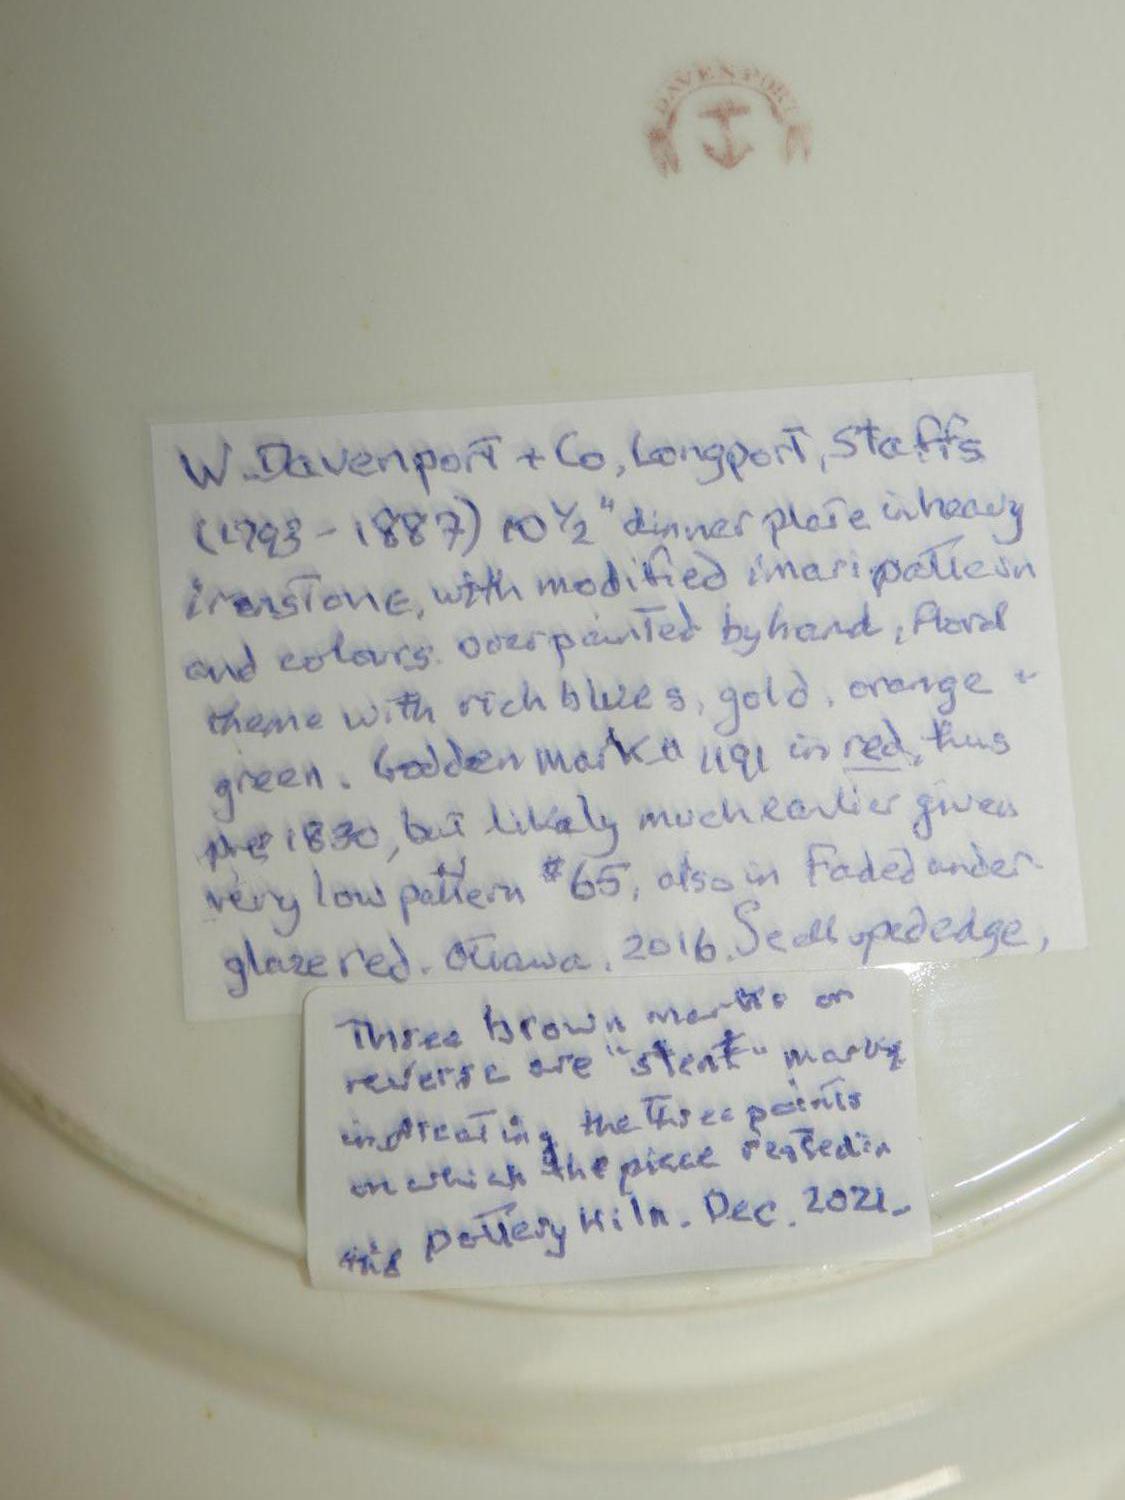 DAVENPORT
W. Davenport + Co, Longport, Staffs
(1793-1887) 10 1/2" dinner plate in heavy
ironstone, with modified imari pattern
and colours overpainted by hand, floral
theme with rich blues, gold, orange +
green. Godden mark # 1191 in red, thus
pre 1830, but likely much earlier given
very low pattern #65, also in Faded under-
glaze red. Ottawa, 2016. Scalloped edge,
Three brown marks on
reverse are "stent" marks
indicating the three points
on which the piece rested in
the pottery kiln. Dec. 2021.